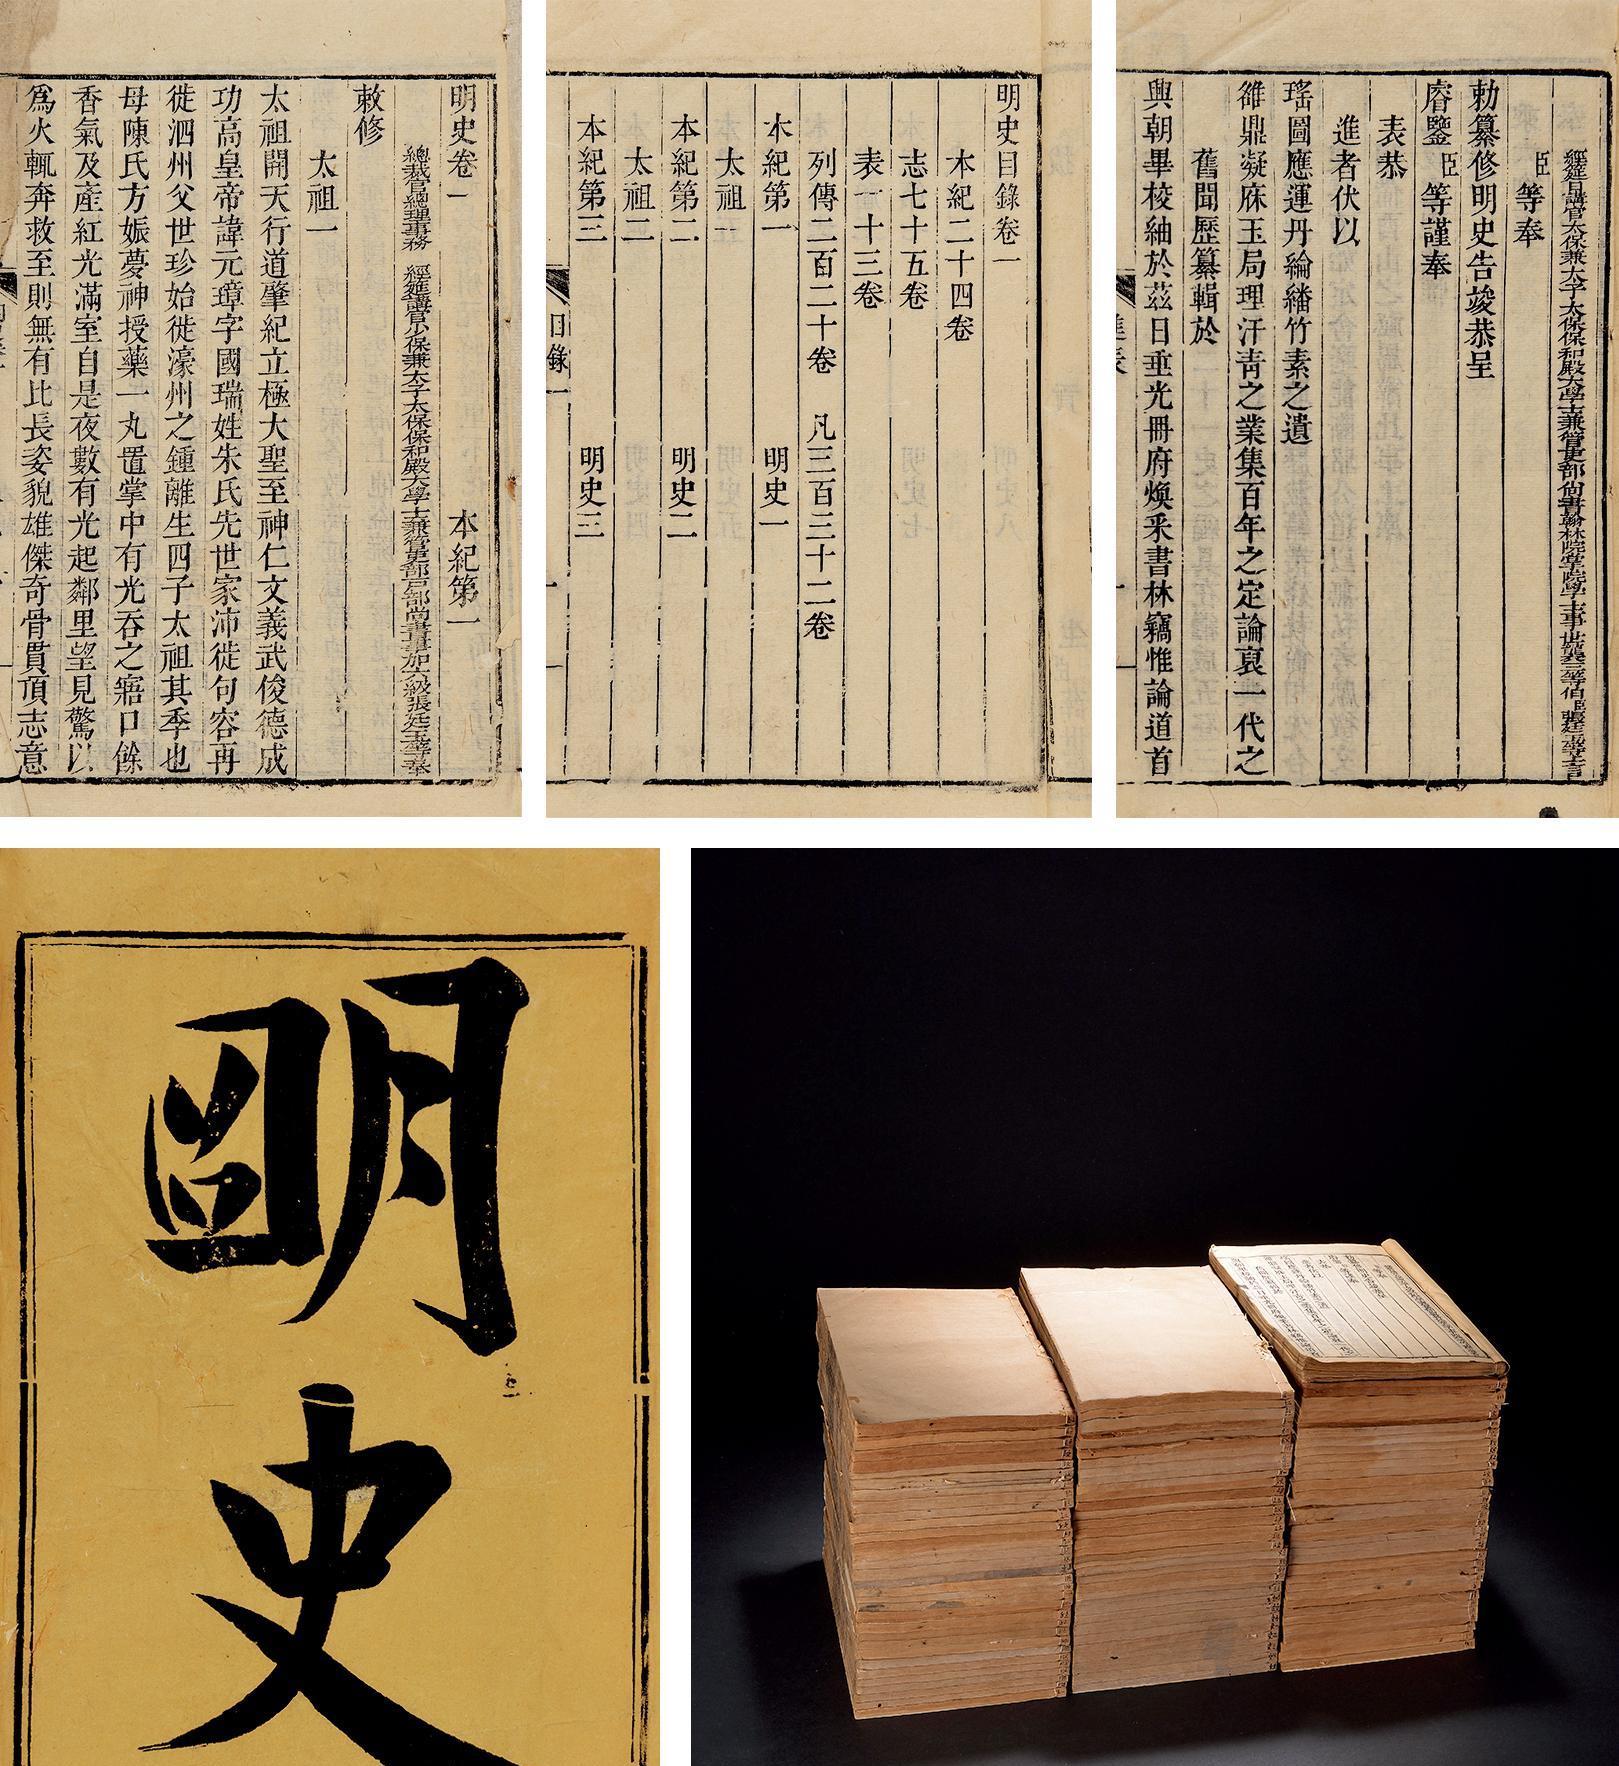 明史卷一　本紀第一
總裁官總理事務　經筵講官少保兼太子太保保和殿大學士兼管吏部戶部尚書事加六級張廷玉等奉
敕修
太祖一
太祖開天行道肇紀立極大聖至神仁文義武俊德成
功高皇帝諱元璋字國瑞姓朱氏先世家沛徙句容再
徙泗州父世珍始徙濠州之鍾離生四子太祖其季也
母陳氏方娠夢神授藥一丸置掌中有光吞之寤口餘
香氣及產紅光滿室自是夜數有光起鄰里望見驚以
爲火輒奔救至則無有比長姿貌雄傑奇骨貫頂志意
明史目錄卷一
本紀二十四卷
志七十五卷
表一十三卷
列傳二百二十卷　凡三百三十二卷
本紀第一　明史一
太祖一
本紀第二　明史二
太祖二
本紀第三　明史三
目錄一
經筵日講官太保兼太子太保保和殿大學士兼管吏部尚書翰林院掌院學士事世襲三等伯臣張廷玉等上言
臣等奉
勅纂修明史告竣恭呈
睿鑒臣等謹奉
表恭
進者伏以
瑤圖應運丹綸繙竹素之遺
雒鼎凝庥玉局理汗靑之業集百年之定論裒一代之
舊聞歷纂輯於
興朝畢校紬於茲日垂光冊府煥釆書林竊惟論道首
明
史